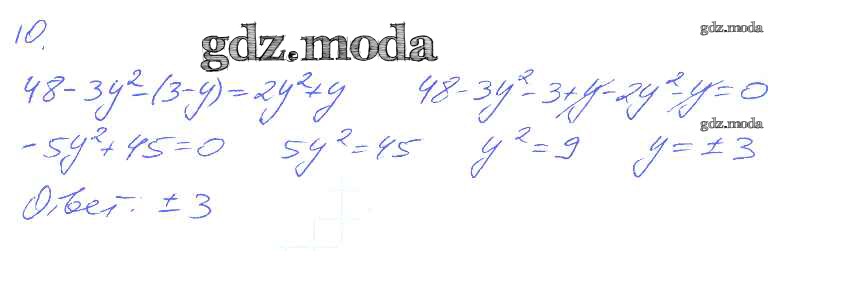 10.
gdz.moda
gdz.moda
48 - 3y² - (3 - y) = 2y² + y 48 - 3y² - 3 + y - 2y² - y = 0
gdz.moda
- 5y² + 45 = 0 5y² = 45 y² = 9 y = ± 3
Ответ: ± 3